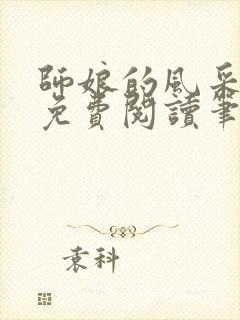 師娘的風采
免費閱讀筆
袁科